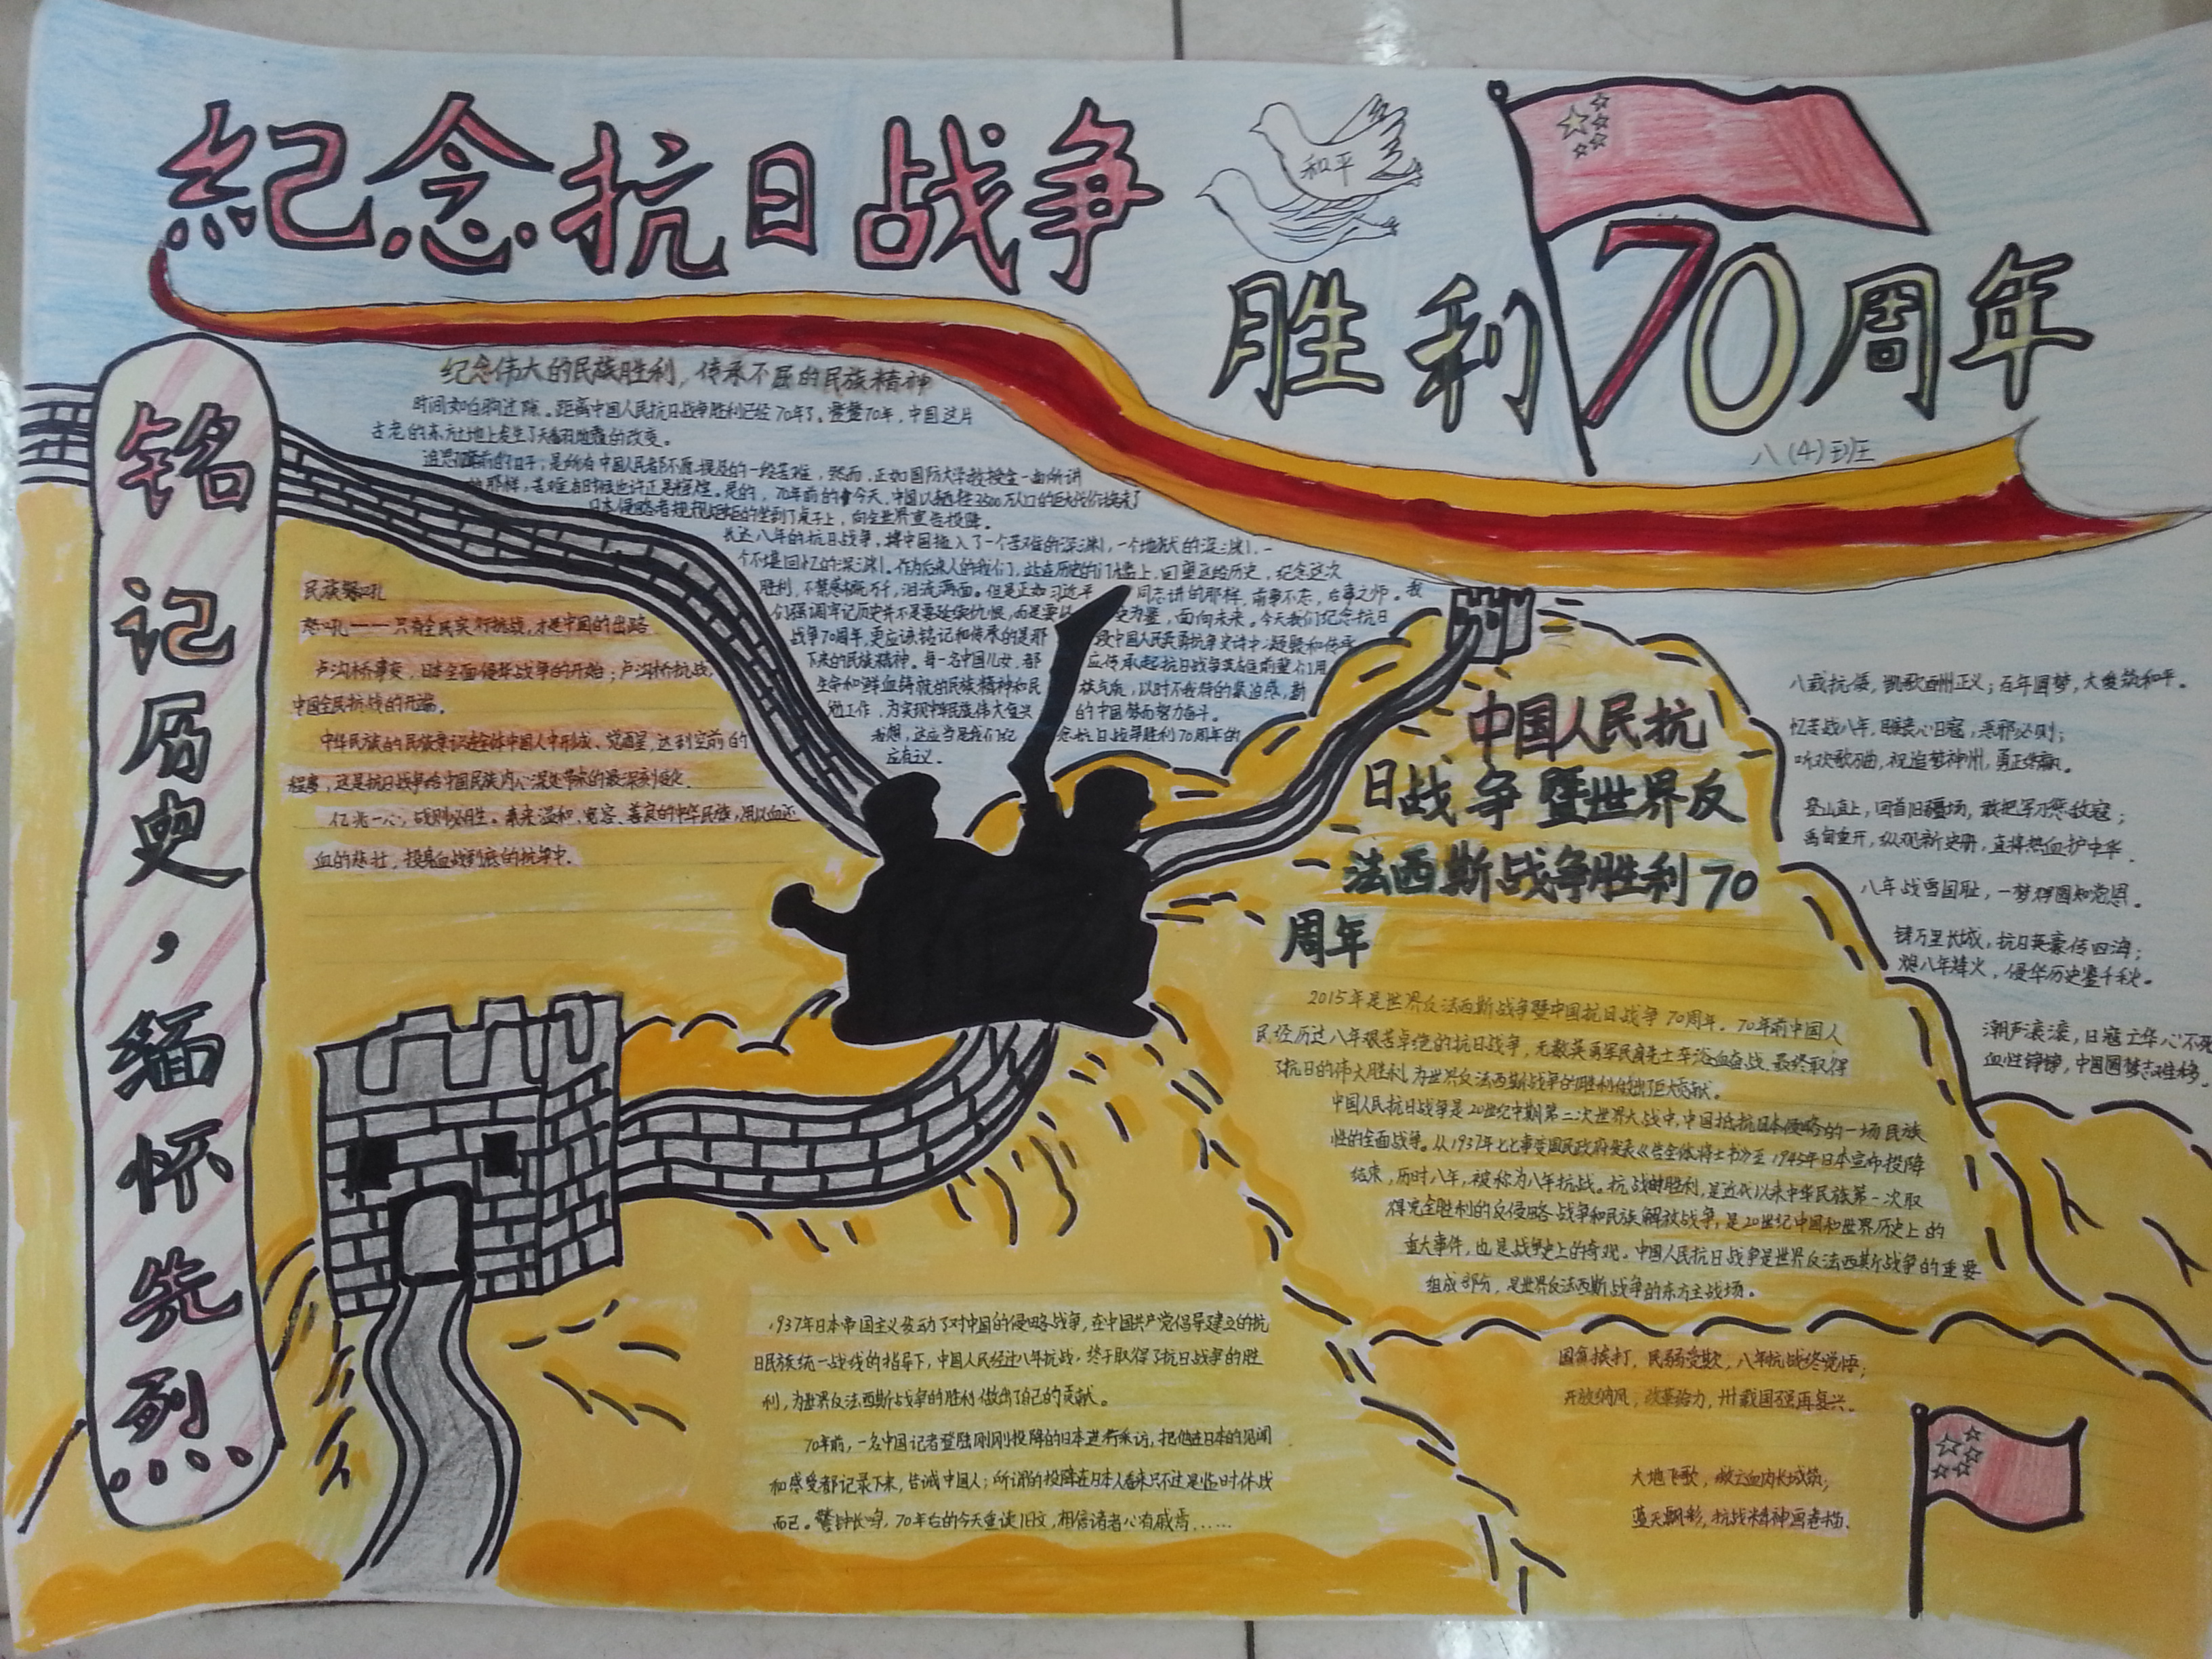 纪念抗日战争
和平
胜利70周年
八(4)班
铭记历史，缅怀先烈
纪念伟大的民族胜利，传承不屈的民族精神
时间如白驹过隙。距离中国人民抗日战争胜利已经70年了。整整70年，中国这片
古老的东方土地上发生了天翻地覆的改变。
是所有中国人民都不愿提及的一段苦难，然而，正如国防大学教授金一南所讲
那样，苦难者时候也许正是辉煌。是的，70年前的今天，中国以牺牲3500万人口的巨大代价换来了
日本侵略者规规矩矩的坐到了桌子上，向全世界宣告投降。
长达八年的抗日战争，将中国拖入了一个苦难的深渊，一个地狱的深渊，一
个不堪回忆的深渊。作为后来人的我们，站在历史的门槛上，回望这段历史，纪念这次
胜利，不禁感慨万千，泪流满面。但是正如习近平同志讲的那样，前事不忘，后事之师。我
们强调牢记历史并不是要延续仇恨，而是要以史为鉴，面向未来。今天我们纪念抗日
战争70周年，更应该铭记和传承的是那段中国人民英勇抗争史诗中凝聚和传承
下来的民族精神。每一名中国儿女，都应传承起抗日战争英雄前辈们用
生命和鲜血铸就的民族精神和民族气质，以时不我待的紧迫感，勤
勉工作，为实现中华民族伟大复兴的中国梦而努力奋斗。
着想，这应当是我们纪念抗日战争胜利70周年的
应有议。
民族怒吼
怒吼——只有全民实行抗战，才是中国的出路
卢沟桥事变，日本全面侵华战争的开始；卢沟桥抗战，
中国全民抗战的开端。
中华民族的民族意识在全体中国人中形成、觉醒，达到空前的
程度，这是抗日战争给中国民族内心深处带来的最深刻变化。
亿兆一心，战则必胜。素来温和、宽容、善良的中华民族，用以血还
血的悲壮，投身血战到底的抗争中。
中国人民抗
日战争暨世界反
法西斯战争胜利70
周年
2015年是世界反法西斯战争暨中国抗日战争70周年。70年前中国人
民经历过八年艰苦卓绝的抗日战争，无数英勇军民身先士卒浴血奋战，最终取得
了抗日的伟大胜利，为世界反法西斯战争的胜利做出了巨大贡献。
中国人民抗日战争是20世纪中期第二次世界大战中，中国抵抗日本侵略的一场民族
性的全面战争。从1937年七七事变国民政府发表《告全体将士书》至1945年日本宣布投降
结束，历时八年，被称为八年抗战。抗战的胜利，是近代以来中华民族第一次取
得完全胜利的反侵略战争和民族解放战争，是20世纪中国和世界历史上的
重大事件，也是战争史上的奇观。中国人民抗日战争是世界反法西斯战争的重要
组成部分，是世界反法西斯战争的东方主战场。
八载抗倭，凯歌酬正义；百年圆梦，大爱筑和平。
忆苦战八年，日寇，恶邪必刚；
听欢歌一曲，祝追梦神州，勇正终赢。
登山直上，回首旧疆场，敢把军刀惩敌寇；
禹甸重开，纵观新史册，直将热血护中华。
八年战雪国耻，一梦得圆知党恩。
铸万里长城，抗日英豪传四海；
熄八年烽火，侵华历史鉴千秋。
潮声滚滚，日寇亡华心不死
血性铮铮，中国圆梦志难移
1937年日本帝国主义发动了对中国的侵略战争，在中国共产党倡导建立的抗
日民族统一战线的指导下，中国人民经过八年抗战，终于取得了抗日战争的胜
利，为世界反法西斯战争的胜利做出了自己的贡献。
70年前，一名中国记者登陆刚刚投降的日本进行采访，把他在日本的见闻
和感受都记录下来，告诫中国人；所谓的投降在日本人看来只不过是临时休战
而已。警钟长鸣，70年后的今天重读旧文，相信读者心有戚焉……
国贫挨打，民弱受欺，八年抗战终觉悟；
开放纳风，改革给力，卅载国强再复兴。
大地飞歌，救亡血肉长城筑；
蓝天飘彩，抗战精神画卷描。